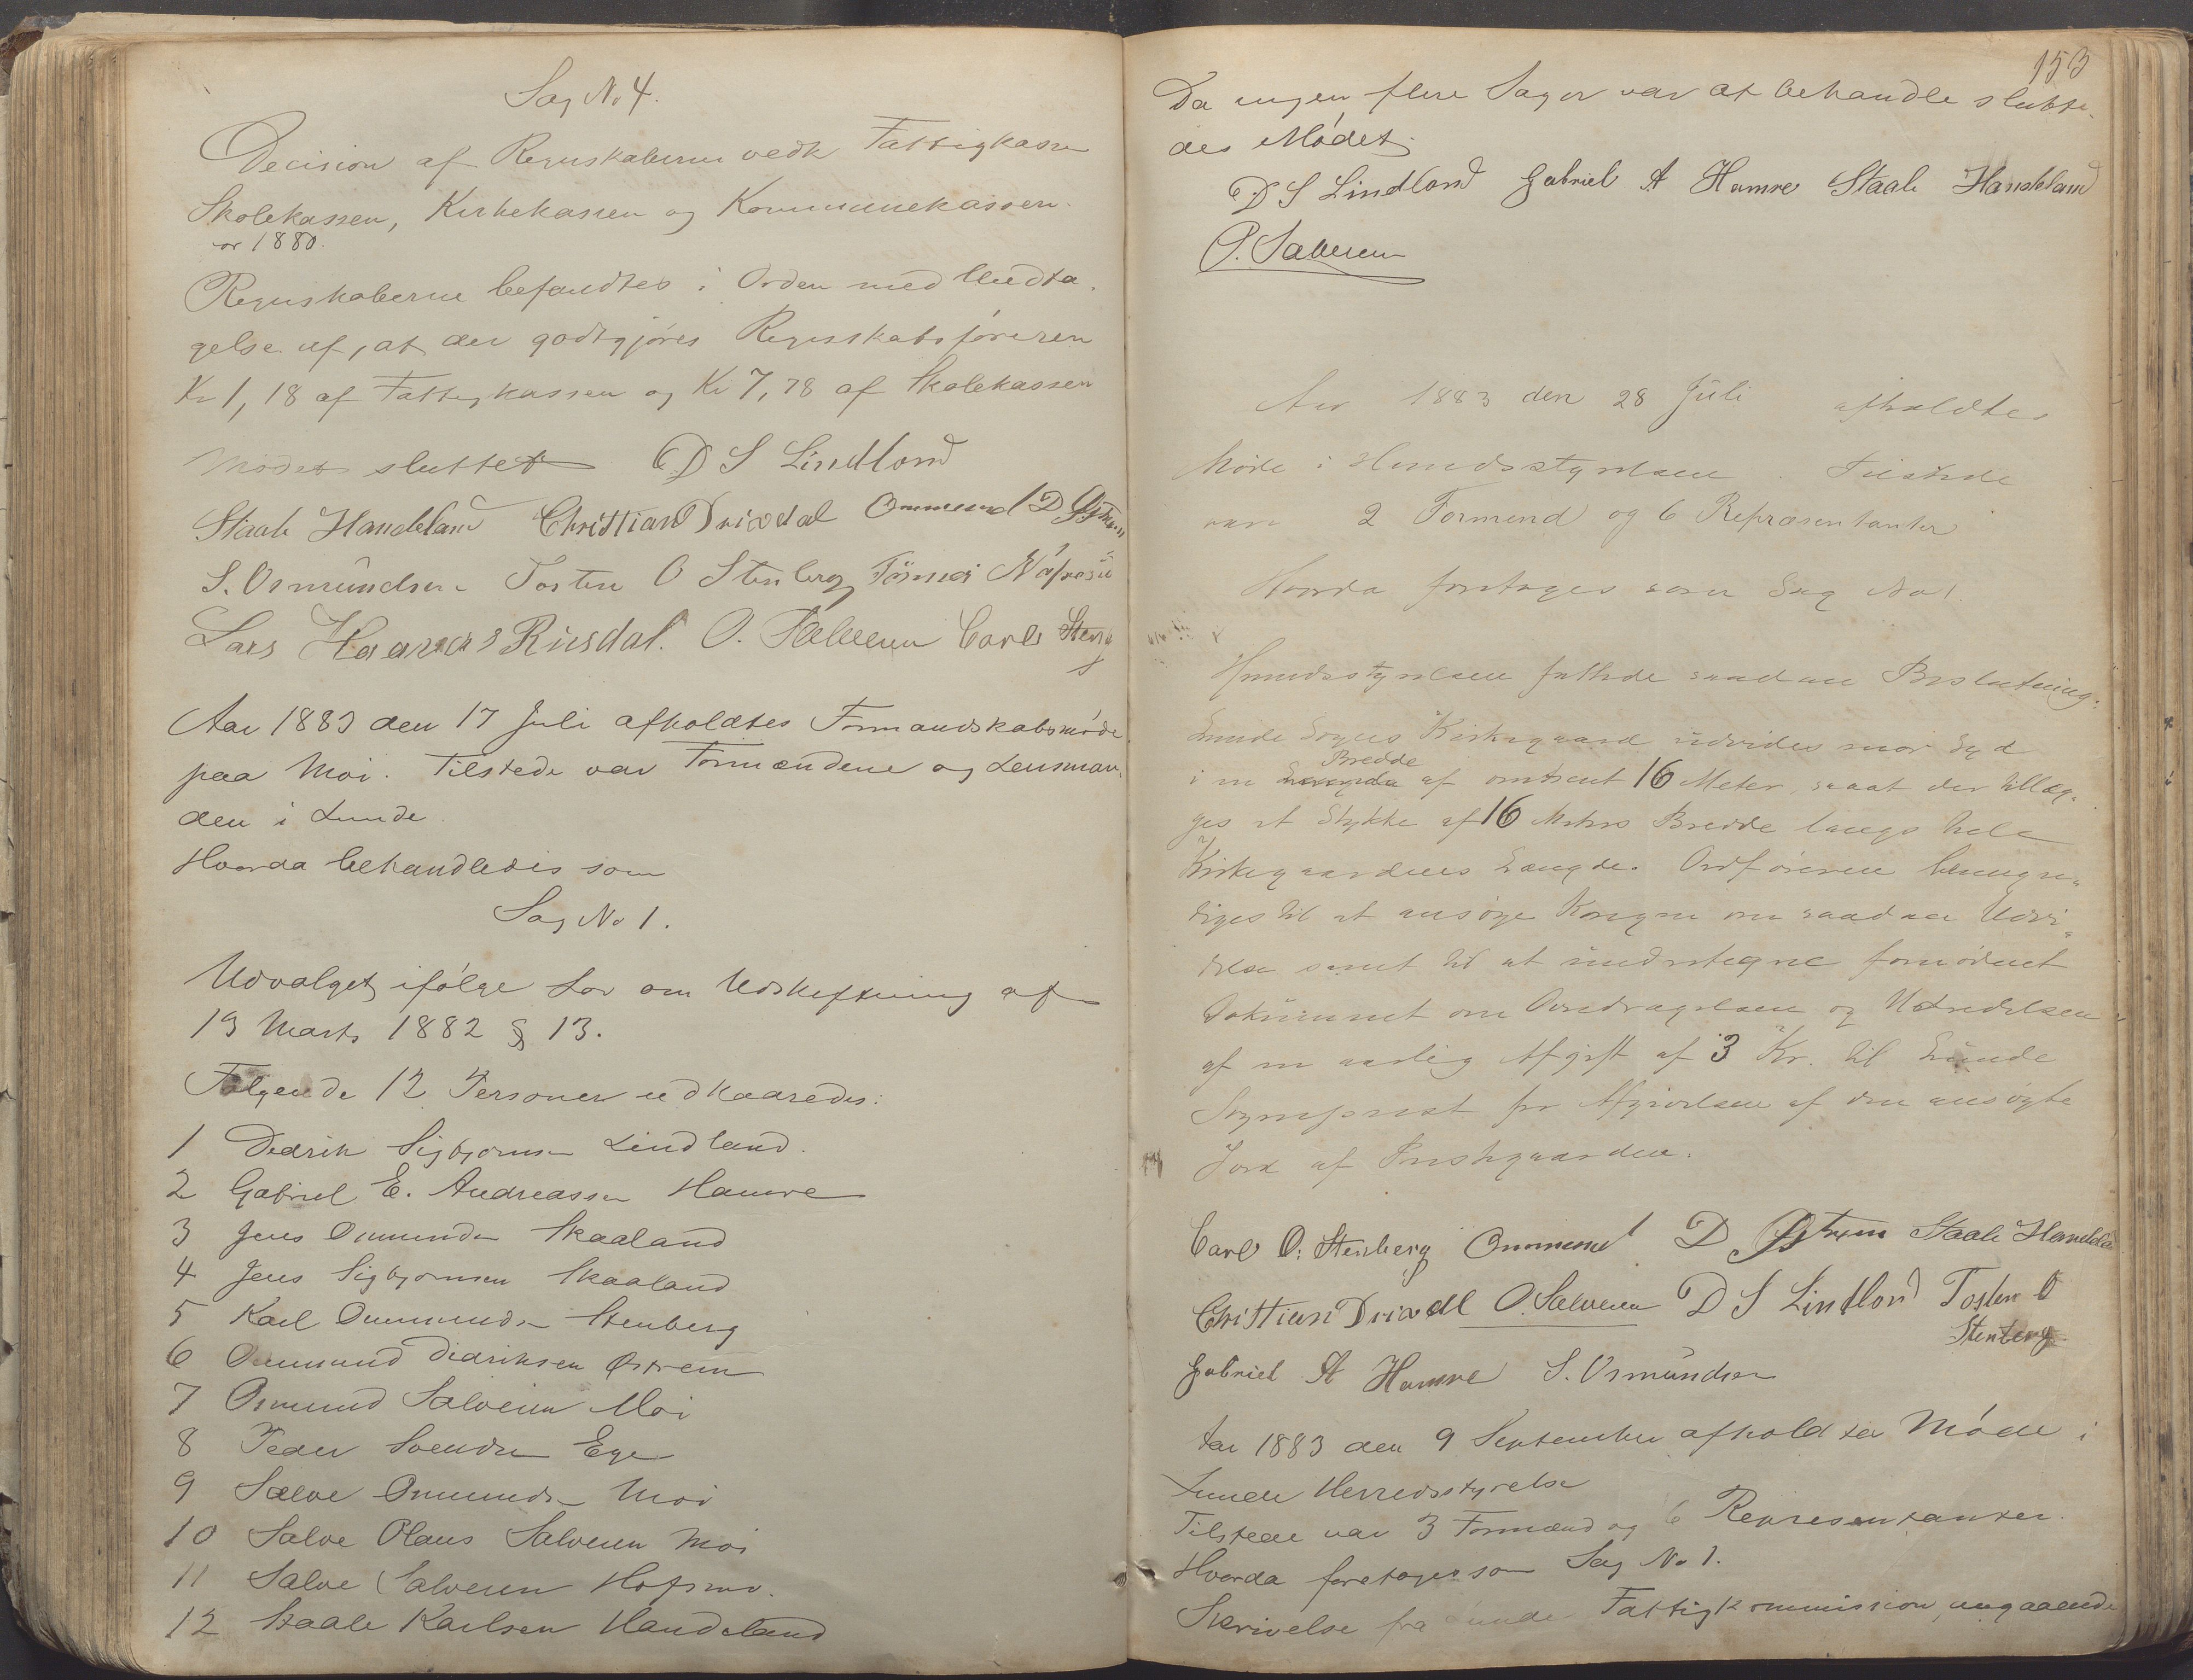 Sag No 4.
Decision af Regnskaberne vedk Fattigkassen
Skolekassen, Kirkekassen og Kommunekassen
for 1880.
Regnskaberne befandtes i Orden med Undta-
gelse af, at der godtgjøres Regnskabsføreren
Kr 1,18 af Fattigkassen og Kr 7,78 af Skolekassen
Mødet sluttet D S Lindland
Staale Handeland Christian Drivdal Ommund D Østrem
S. Osmundsen Tosten O Stenberg
Lars Rusdal. O. Salvesen Carl Stenb
Aar 1883 den 17 Juli afholdtes Formandskabsmøde
paa Moi. Tilstede var Formændene og Lensman-
den i Lunde.
Hvorda behandledes som
Sag No 1.
Udvalget ifølge Lov om Udskiftning af
13 Marts 1882 § 13.
Følgende 12 Personer udkaaredes:
1 Didrik Sigbjørnsen Lindland.
2 Gabriel E. Andreassen Hamre
3 Jens Ommundsn Skaaland
4 Jens Sigbjørnsen Skaaland
5 Karl Ommundsn Stenberg
6 Ommund Didriksen Østrem
7 Osmund Salvesen Moi
8 Peder Svendsn Ege
9 Salve Ommunds Moi
10 Salve Olaus Salvesen Moi
11 Salve Salvesen Hofsmo.
12 Staale Karlsen Handeland
153
Da ingen flere Sager var at behandle slutte-
des Mødet.
D S Lindland Gabriel A Hamre Staale Handeland
O. Salvesen
Aar 1883 den 28 Juli afholdtes
Møde i Herredsstyrelsen. Tilstede
var 2 Formend og 6 Repræsentanter
Hvorda foretoges som Sag No 1.
Herredsstyrelsen fattede saadan Beslutning:
Lunde Sognes Kirkegaard udvides mod Syd
i en Bredde af omtrent 16 Meter, saaat der tillæg-
ges et Stykke af 16 Meters Bredde langs hele
Kirkegaardens Længde. Ordføreren bemyn-
diges til at ansøge Kongen om saadan Udvi-
delse samt til at undertegne fornødent
Dokument om Overdragelsen og Udredelsen
af en aarlig Afgift af 3 Kr. til Lunde
Sogneprest for Afgivelsen af den ansøgte
Jord af Prestegaarden.
Carl O. Stenberg Ommund D Østrem Staale Handela
Christian Drivdal O. Salvesen D S Lindland Tosten O
Stenberg
Gabriel A Hamre S. Osmundsen
Aar 1883 den 9 September afholdtes Møde i
Lunde Herredsstyrelse
Tilstede var 3 Formænd og 6 Representanter.
Hvorda foretoges som Sag No 1.
Skrivelse fra Lunde Fattigkommission angaaende